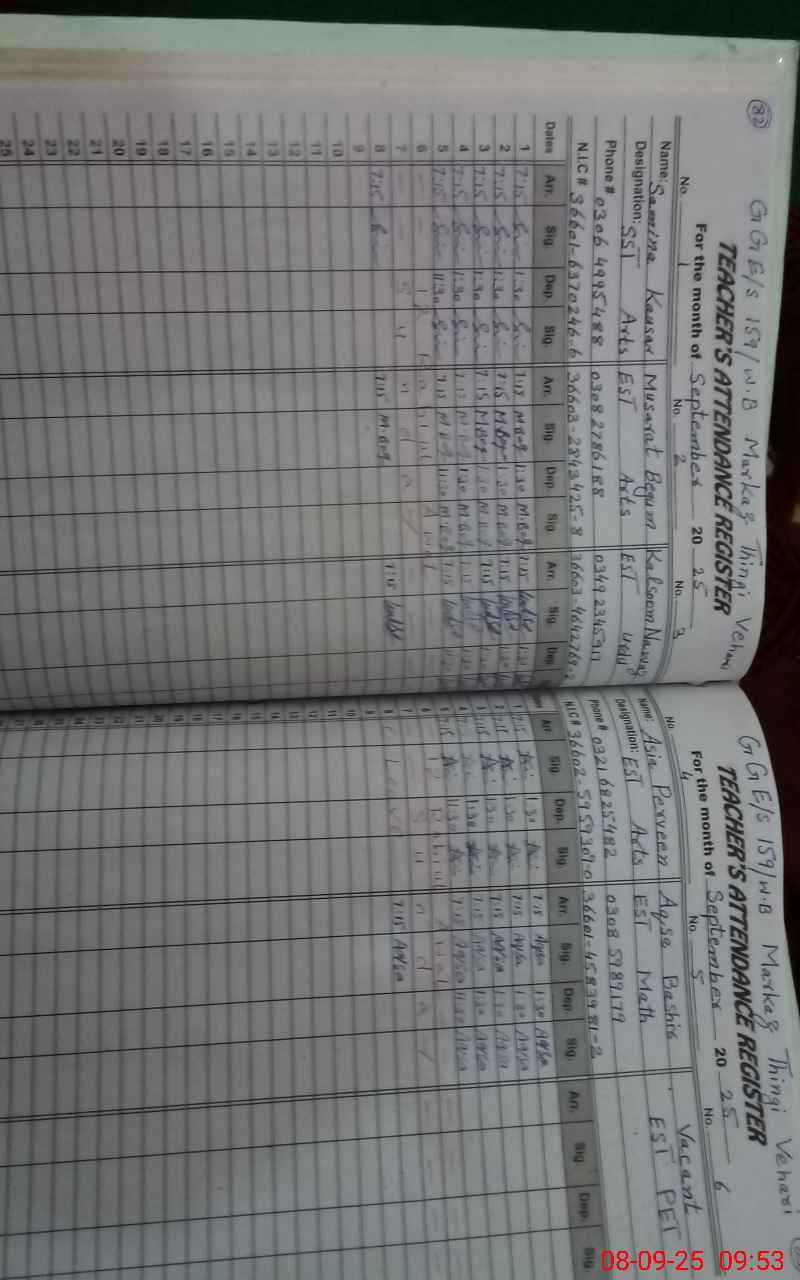 82
G G E/s 159/W.B Markaz Thingi Vehari
TEACHER'S ATTENDANCE REGISTER
For the month of September 20 25
No. 1 No. 2 No. 3
Name: Samina Kausar Musarat Begum Kalsoom Nawaz
Designation: SST Arts EST Arts EST Urdu
Phone # 0306 4995488 0308 2786188 0349 2345917
N.I.C # 36601-6370246-6 36603-2843425-8 36603-4642769-2
Dates Arr. Sig. Dep. Sig. Arr. Sig. Dep. Sig. Arr. Sig. Dep.
1 7:15 1:30 7:15 M.Beg 1:30 M.Beg 7:15 1:30
2 7:15 1:30 7:15 M.Beg 1:30 M.Beg 7:15 1:30
3 7:15 1:30 7:15 M.Beg 1:30 M.Beg 7:15 1:30
4 7:15 1:30 7:15 M.Beg 1:30 M.Beg 7:15 1:30
5 7:15 11:30 7:15 M.Beg 11:30 M.Beg 7:15
6 12 Rabi ul Awal
7 S u n d a y
8 7:15 7:15 M.Beg 7:15
9
10
11
12
13
14
15
16
17
18
19
20
21
22
23
24
25
G G E/s 159/W.B Markaz Thingi Vehari
TEACHER'S ATTENDANCE REGISTER
For the month of September 20 25
No. 4 No. 5 No. 6
Name: Asia Perveen Aqsa Bashir Vacant
Designation: EST Arts EST Math EST PET
Phone # 0321 6825482 0308 5989179
N.I.C # 36602-5959309-0 36601-4583981-2
Arr. Sig. Dep. Sig. Arr. Sig. Dep. Sig. Arr. Sig. Dep. Sig.
1 7:15 1:30 7:15 Aqsa 1:30 Aqsa
2 7:15 1:30 7:15 Aqsa 1:30 Aqsa
3 7:15 1:30 7:15 Aqsa 1:30 Aqsa
4 7:15 1:30 7:15 Aqsa 1:30 Aqsa
5 7:15 11:30 7:15 Aqsa 11:30 Aqsa
6 12 Rabi ul Awal
7 S u n d a y
8 Leave 7:15 Aqsa
9
10
11
12
13
14
15
16
17
18
19
20
21
22
23
24
08-09-25 09:53